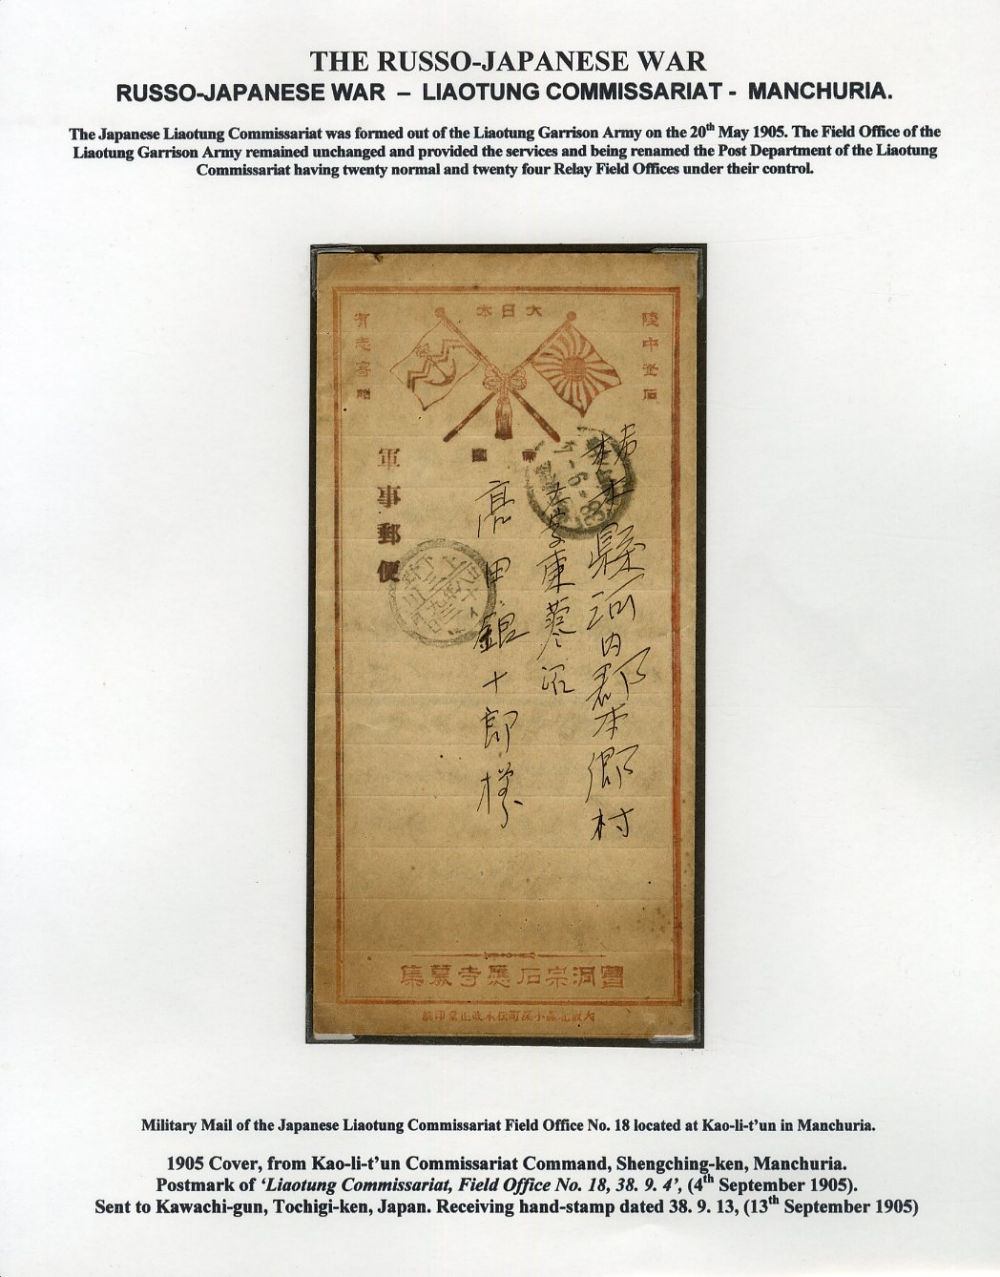 THE RUSSO-JAPANESE WAR
RUSSO-JAPANESE WAR – LIAOTUNG COMMISSARIAT - MANCHURIA.
The Japanese Liaotung Commissariat was formed out of the Liaotung Garrison Army on the 20th May 1905. The Field Office of the
Liaotung Garrison Army remained unchanged and provided the services and being renamed the Post Department of the Liaotung
Commissariat having twenty normal and twenty four Relay Field Offices under their control.
大日本
陸中釜石
有志寄贈
軍事郵便
栃木縣河内郡本郷村
東蓼沼
高田銀十郎様
曹洞宗石應寺募集
Military Mail of the Japanese Liaotung Commissariat Field Office No. 18 located at Kao-li-t’un in Manchuria.
1905 Cover, from Kao-li-t’un Commissariat Command, Shengching-ken, Manchuria.
Postmark of ‘Liaotung Commissariat, Field Office No. 18, 38. 9. 4’, (4th September 1905).
Sent to Kawachi-gun, Tochigi-ken, Japan. Receiving hand-stamp dated 38. 9. 13, (13th September 1905)